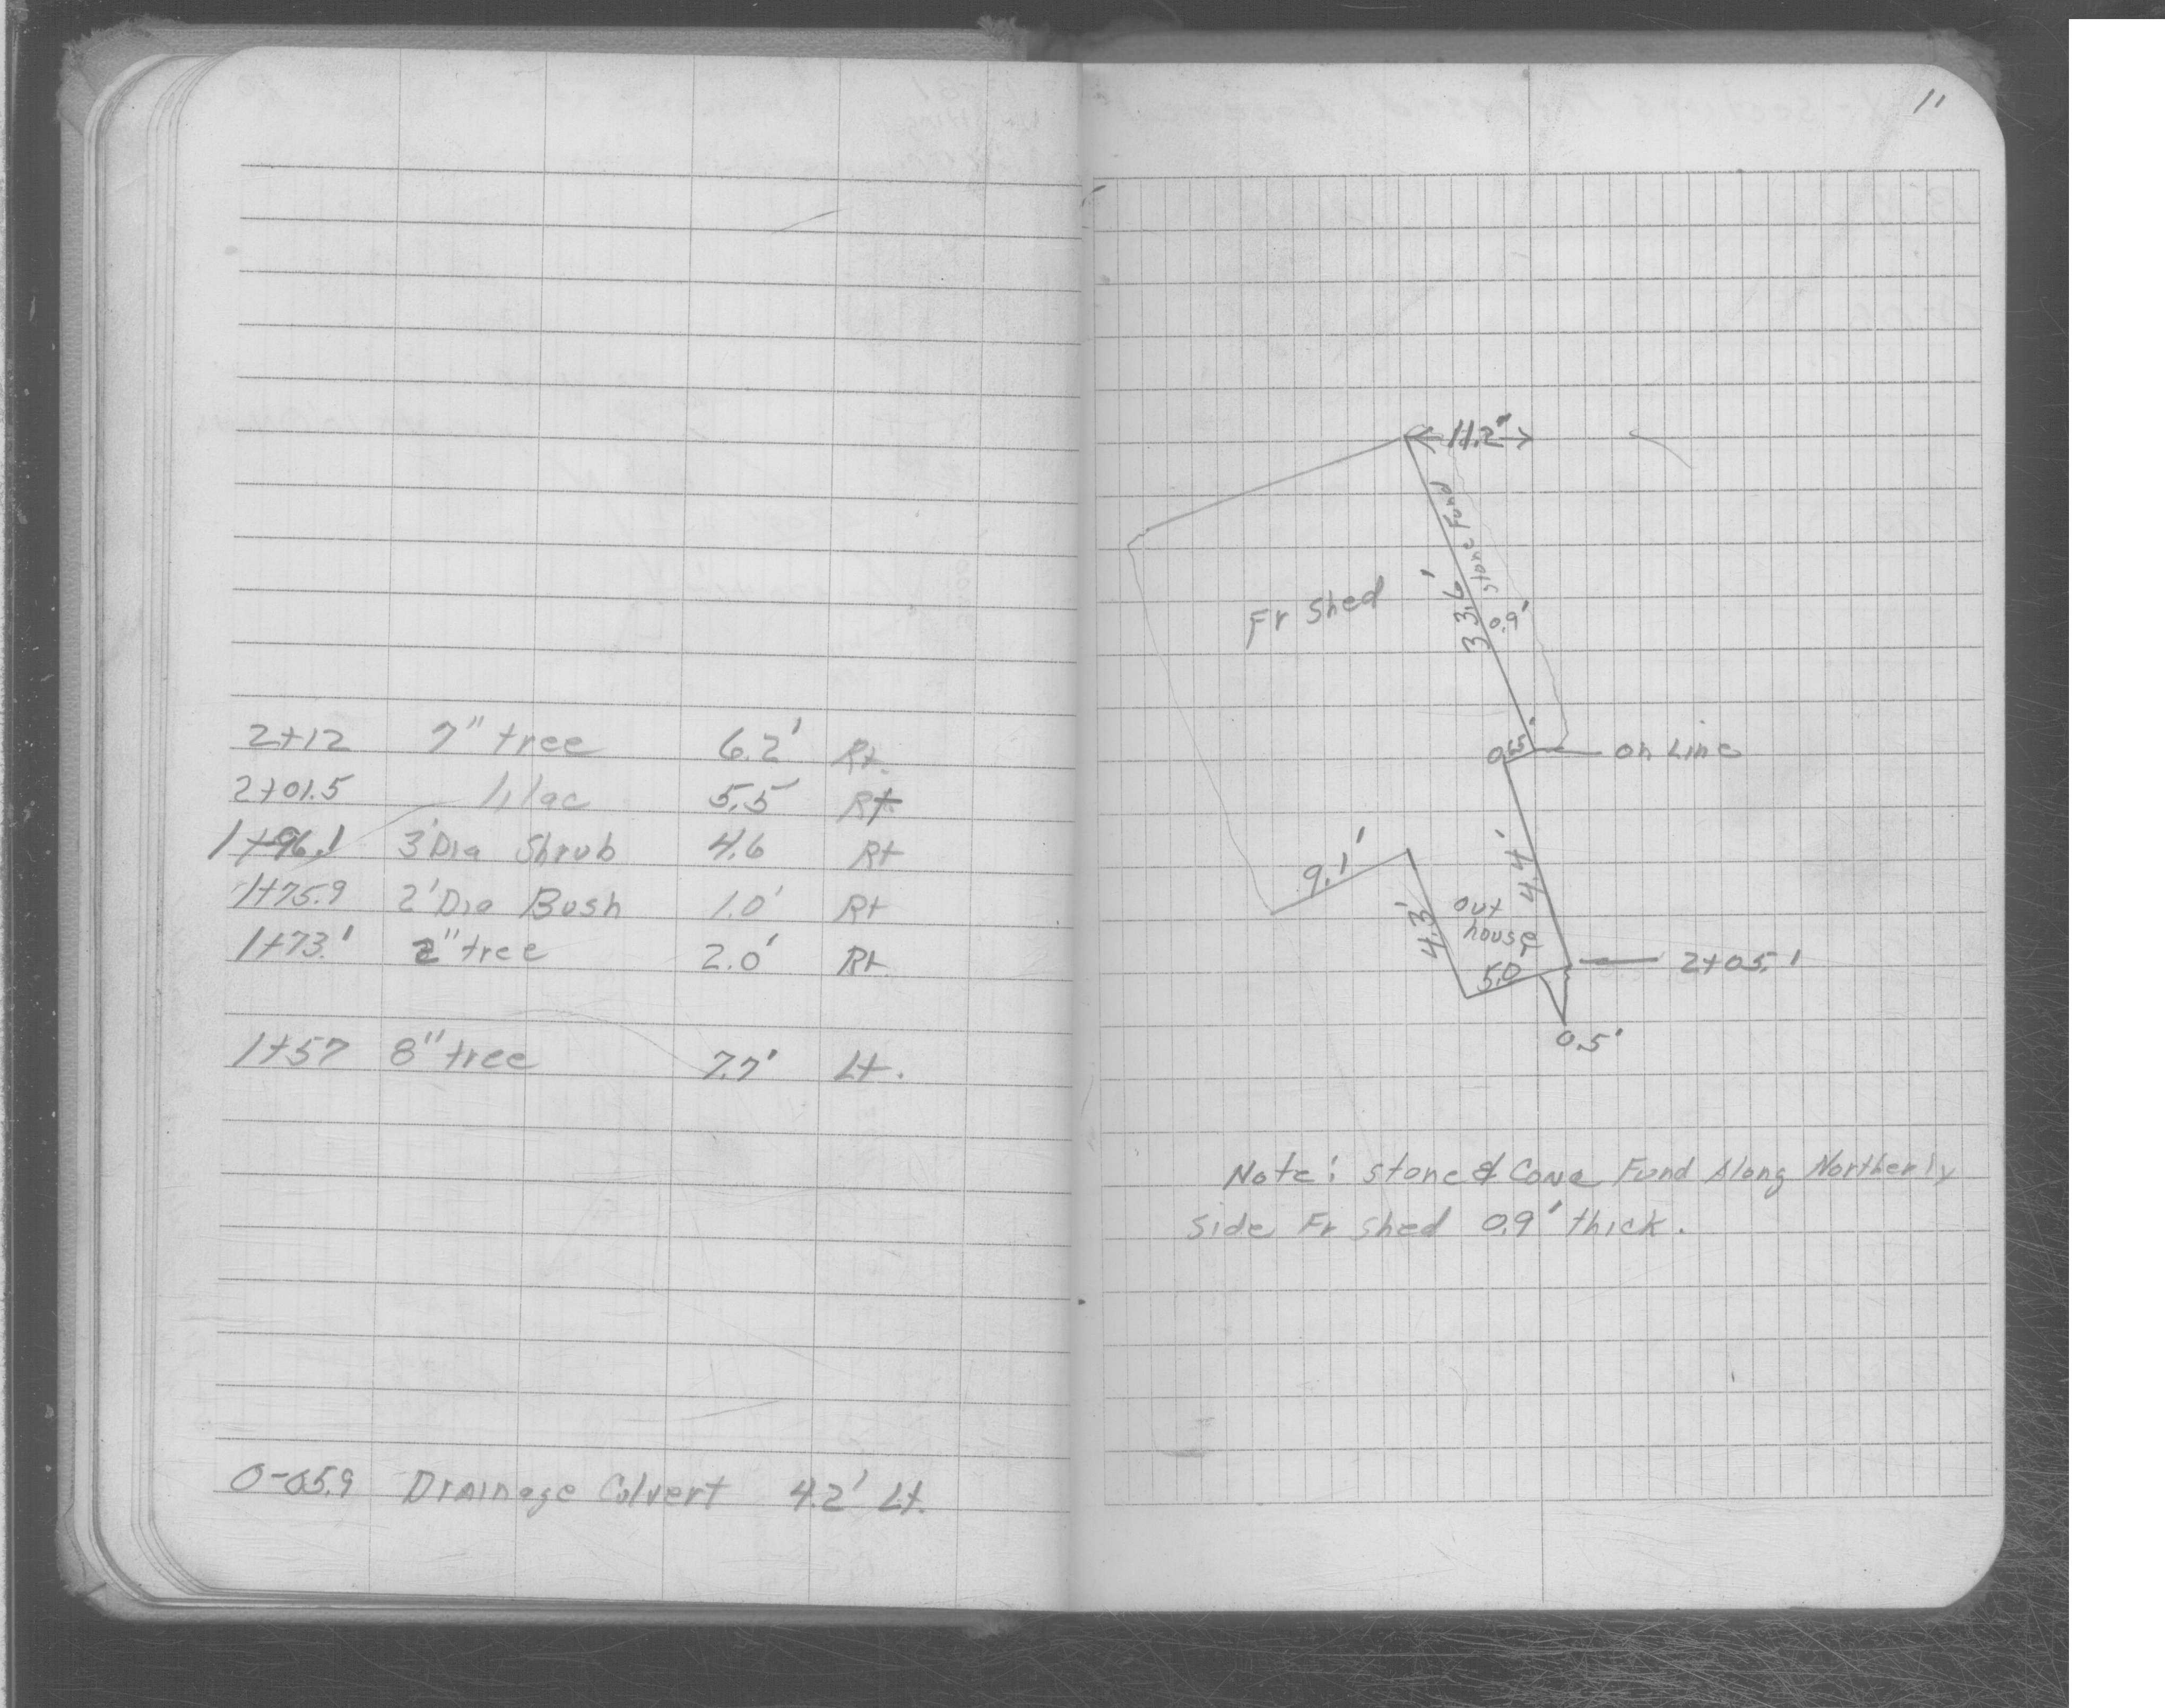 2+12 7" tree 6.2' Rt.
2+01.5 lilac 5.5 Rt
1+96.1 3'Dia Shrub 4.6 Rt
1+75.9 2'Dia Bush 1.0' Rt
1+73.1 2" tree 2.0' Rt
1+57 8" tree 7.7' Lt.
0-05.9 Drainage Culvert 4.2' Lt.
11
11.2'
Stone Fund
33.6'
0.9'
Fr Shed
on Line
9.1'
4.4'
4.3'
out
house
5.0
2+05.1
0.5'
Note: Stone & Conc Fund Along Northerly
Side Fr Shed 0.9' thick.